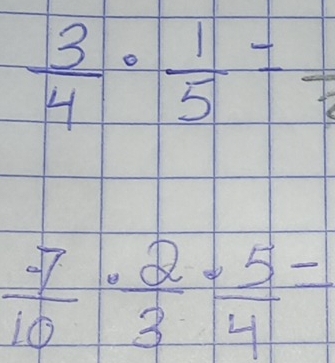 3/4 · 1/5 =
-7/10 · 2/3 · 5/4 =